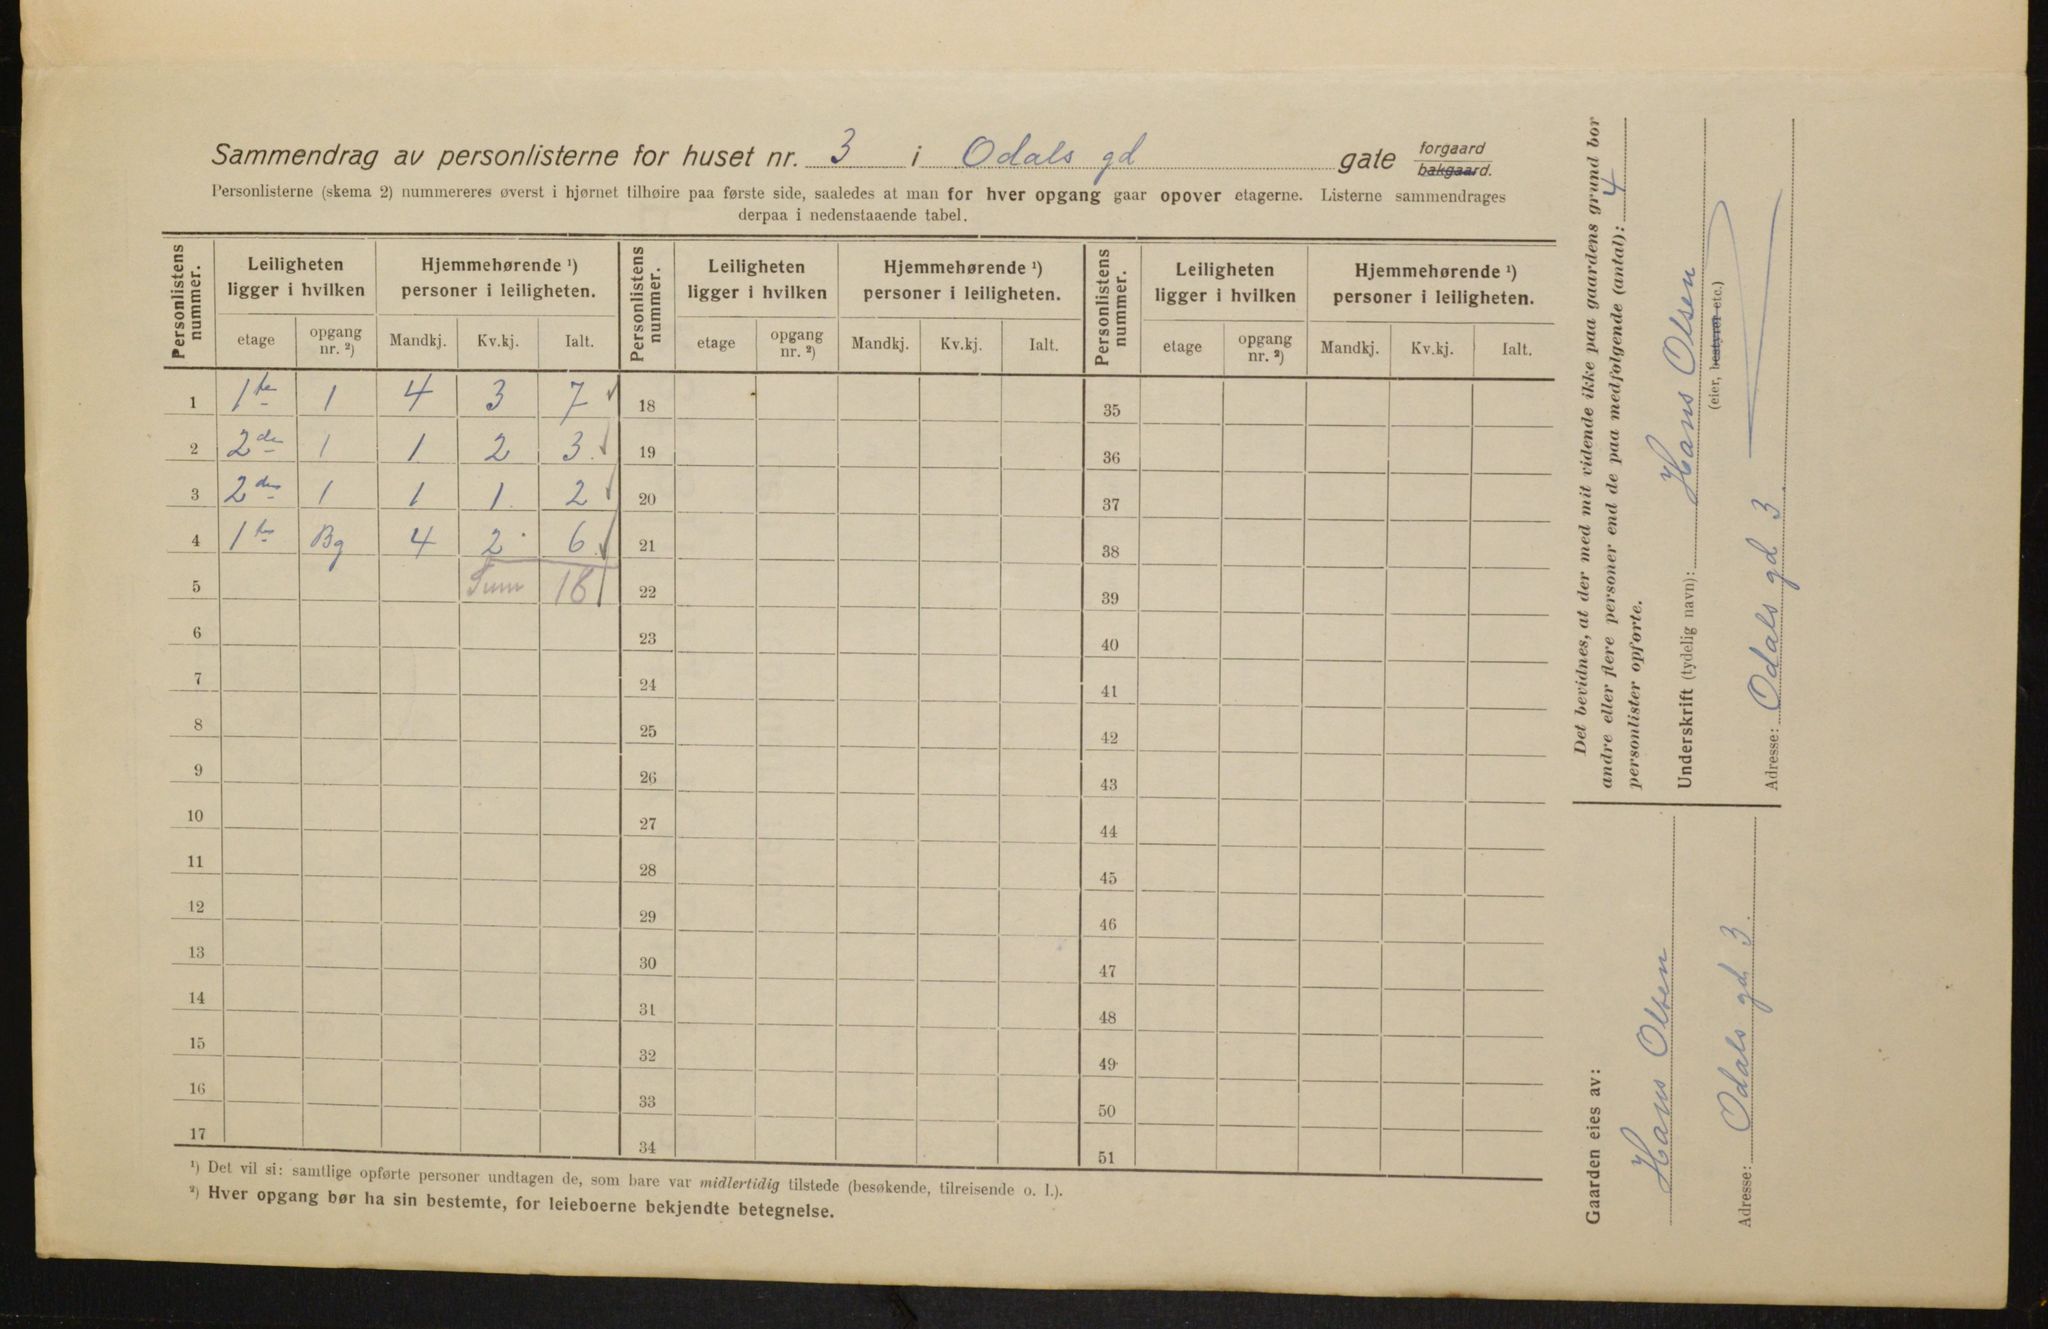 Sammendrag av personlisterne for huset nr. 3 i Odals gd gate forgaard bakgaard.
Personlisterne (skema 2) nummereres øverst i hjørnet tilhøire paa første side, saaledes at man for hver opgang gaar opover etagerne. Listerne sammendrages
derpaa i nedenstaaende tabel.
Personlistens nummer. Leiligheten ligger i hvilken Hjemmehørende ¹) personer i leiligheten. Personlistens nummer. Leiligheten ligger i hvilken Hjemmehørende ¹) personer i leiligheten. Personlistens nummer. Leiligheten ligger i hvilken Hjemmehørende ¹) personer i leiligheten.
etage opgang nr. ²) Mandkj. Kv.kj. Ialt. etage opgang nr. ²) Mandkj. Kv.kj. Ialt. etage opgang nr. ²) Mandkj. Kv.kj. Ialt.
1 1te 1 4 3 7 18 35
2 2den 1 1 2 3 19 36
3 2den 1 1 1 2 20 37
4 1te Bg 4 2 6 21 38
5 Sum 18 22 39
6 23 40
7 24 41
8 25 42
9 26 43
10 27 44
11 28 45
12 29 46
13 30 47
14 31 48
15 32 49
16 33 50
17 34 51
¹) Det vil si: samtlige opførte personer undtagen de, som bare var midlertidig tilstede (besøkende, tilreisende o. l.).
²) Hver opgang bør ha sin bestemte, for leieboerne bekjendte betegnelse.
Det bevidnes, at der med mit vidende ikke paa gaardens grund bor
andre eller flere personer end de paa medfølgende (antal): 4
personlister opførte.
Underskrift (tydelig navn): Hans Olsen
(eier, bestyrer etc.)
Adresse: Odals gd 3
Gaarden eies av:
Hans Olsen
Adresse: Odals gd 3.